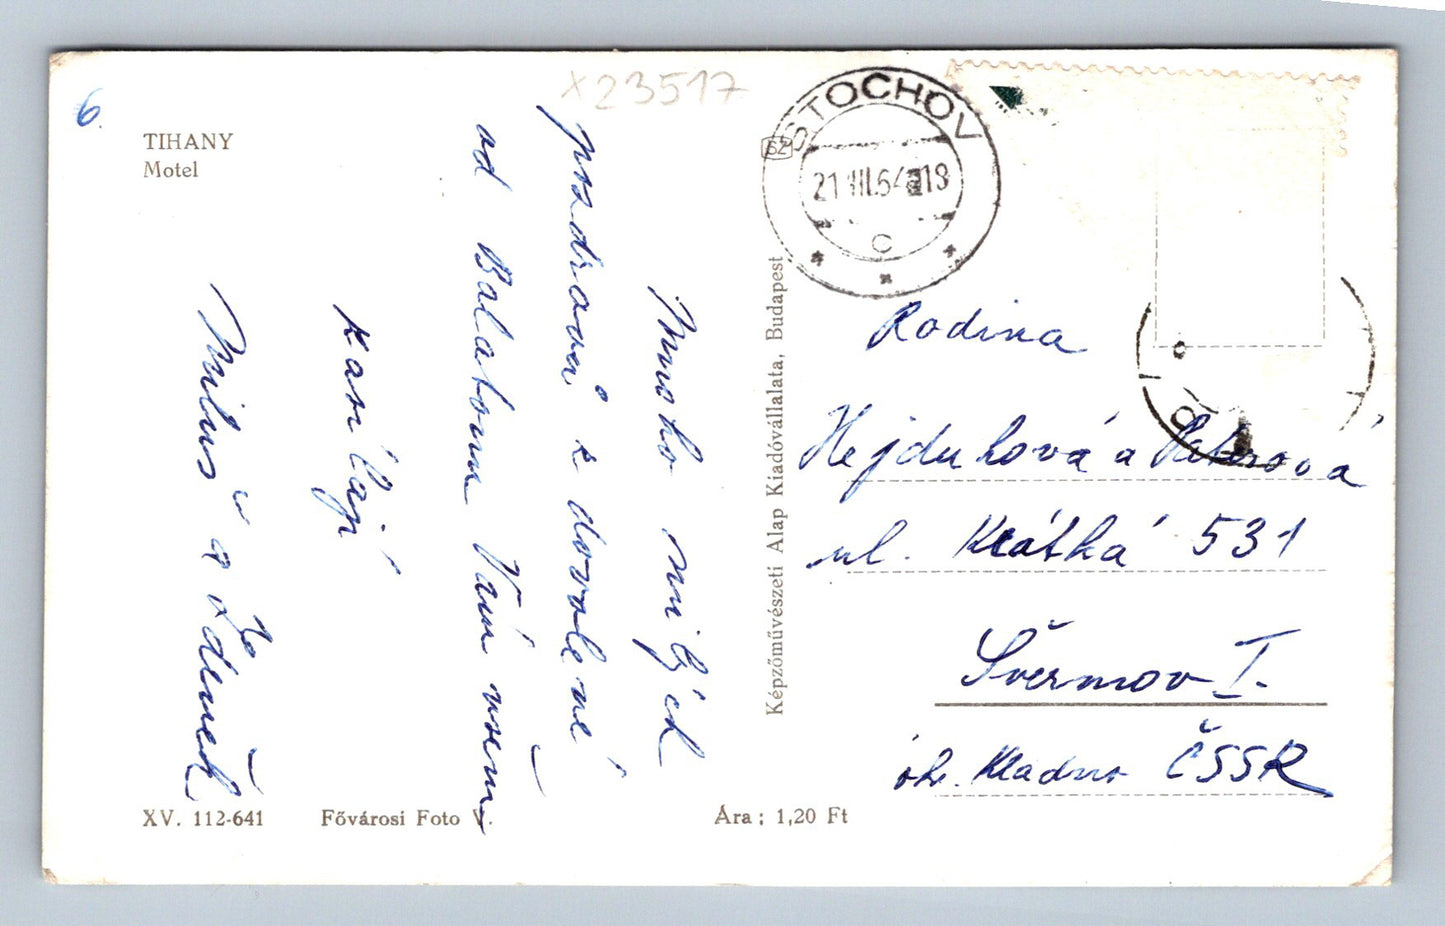 6.
x23517
TIHANY
Motel
Mnoho milých
pozdravů z dovolené
od Balatonu Vám všem
kasílají
Miluš a Zdeněk
XV. 112-641
Fővárosi Foto V.
Ára: 1,20 Ft
Képzőművészeti Alap Kiadóvállalata, Budapest
SZ
STOCHOV
21.VII.64-18
C
Rodina
Hejduková a
ul. Krátká 531
Švermov I.
okr. Kladno ČSSR